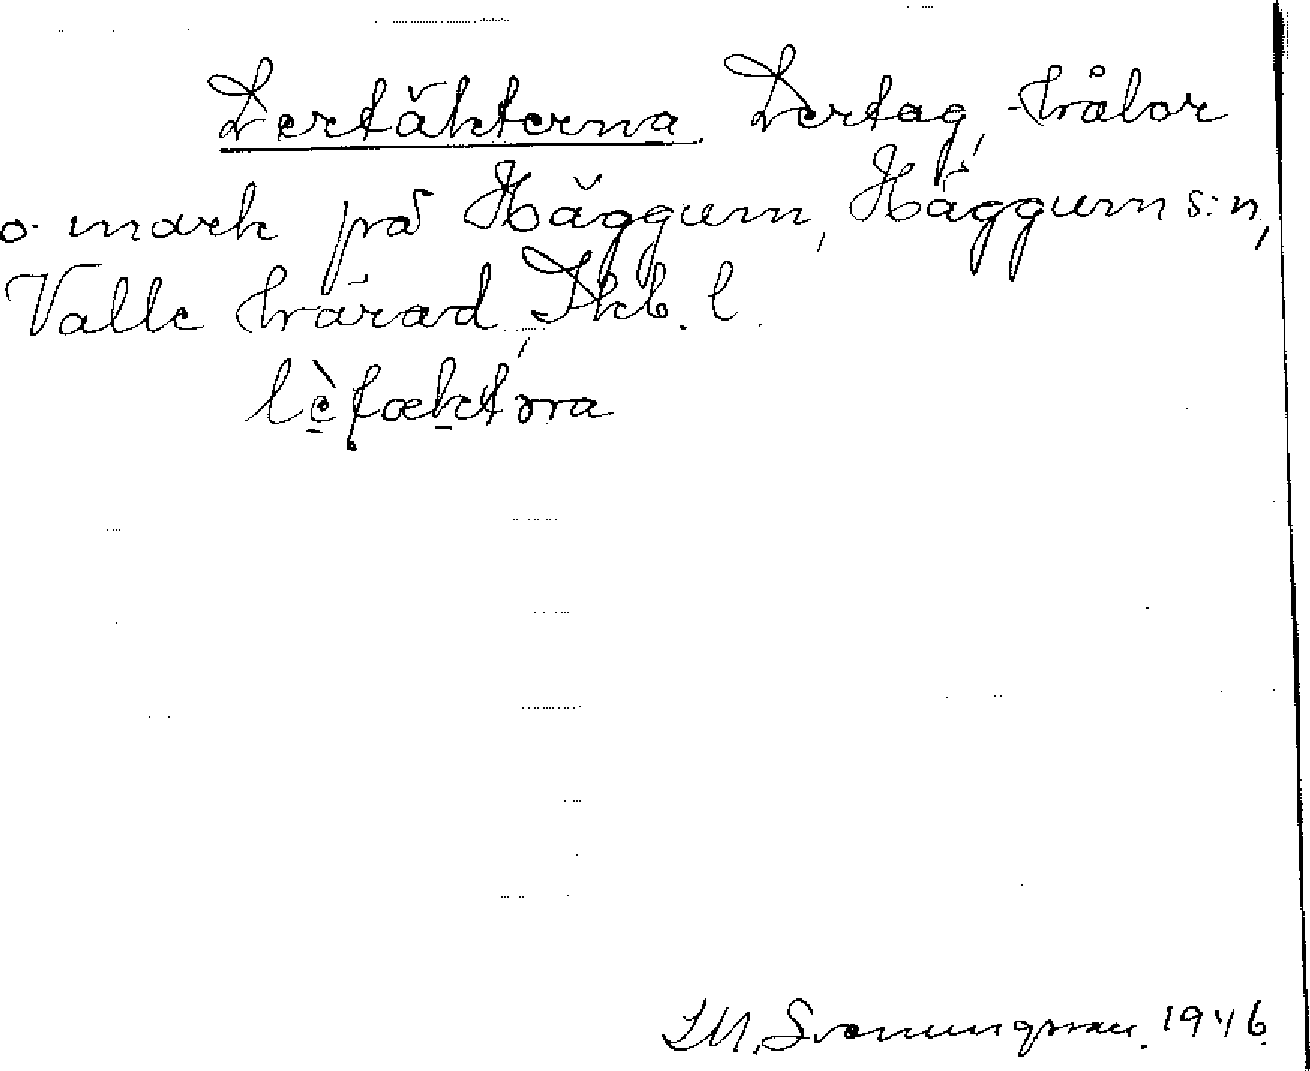 Lertäkterna. Lertag, hålor
o. mark på Häggum, Häggum s:n,
Valle härad, Skb. l.
lètæktəra
S.M. Svenungsson. 1946.